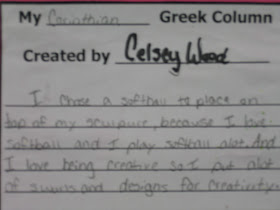 My Corinthian Greek Column
Created by Celsey Wood
I chose a softball to place on
top of my sculpure, because I love
softball and I play softball alot. And
I love being creative so I put alot
of swirls and designs for creativity.